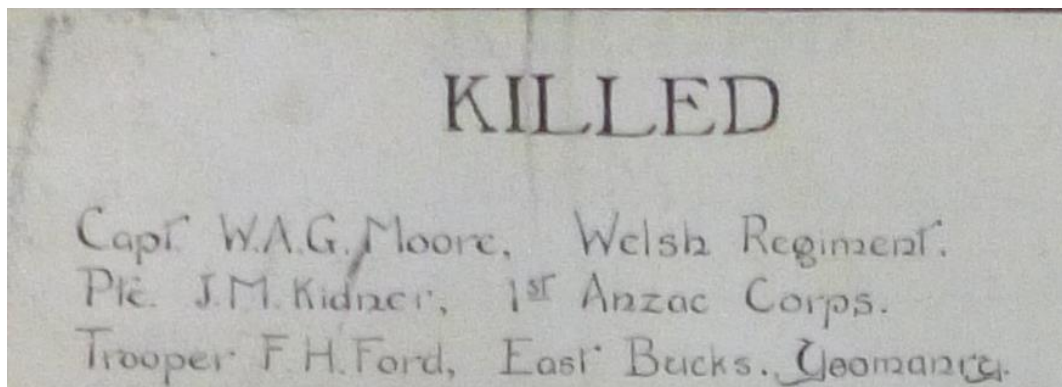 KILLED
Capt. W.A.G. Moore, Welsh Regiment.
Pte. J.M. Kidner, 1st Anzac Corps.
Trooper F.H. Ford, East Bucks. Yeomanry.